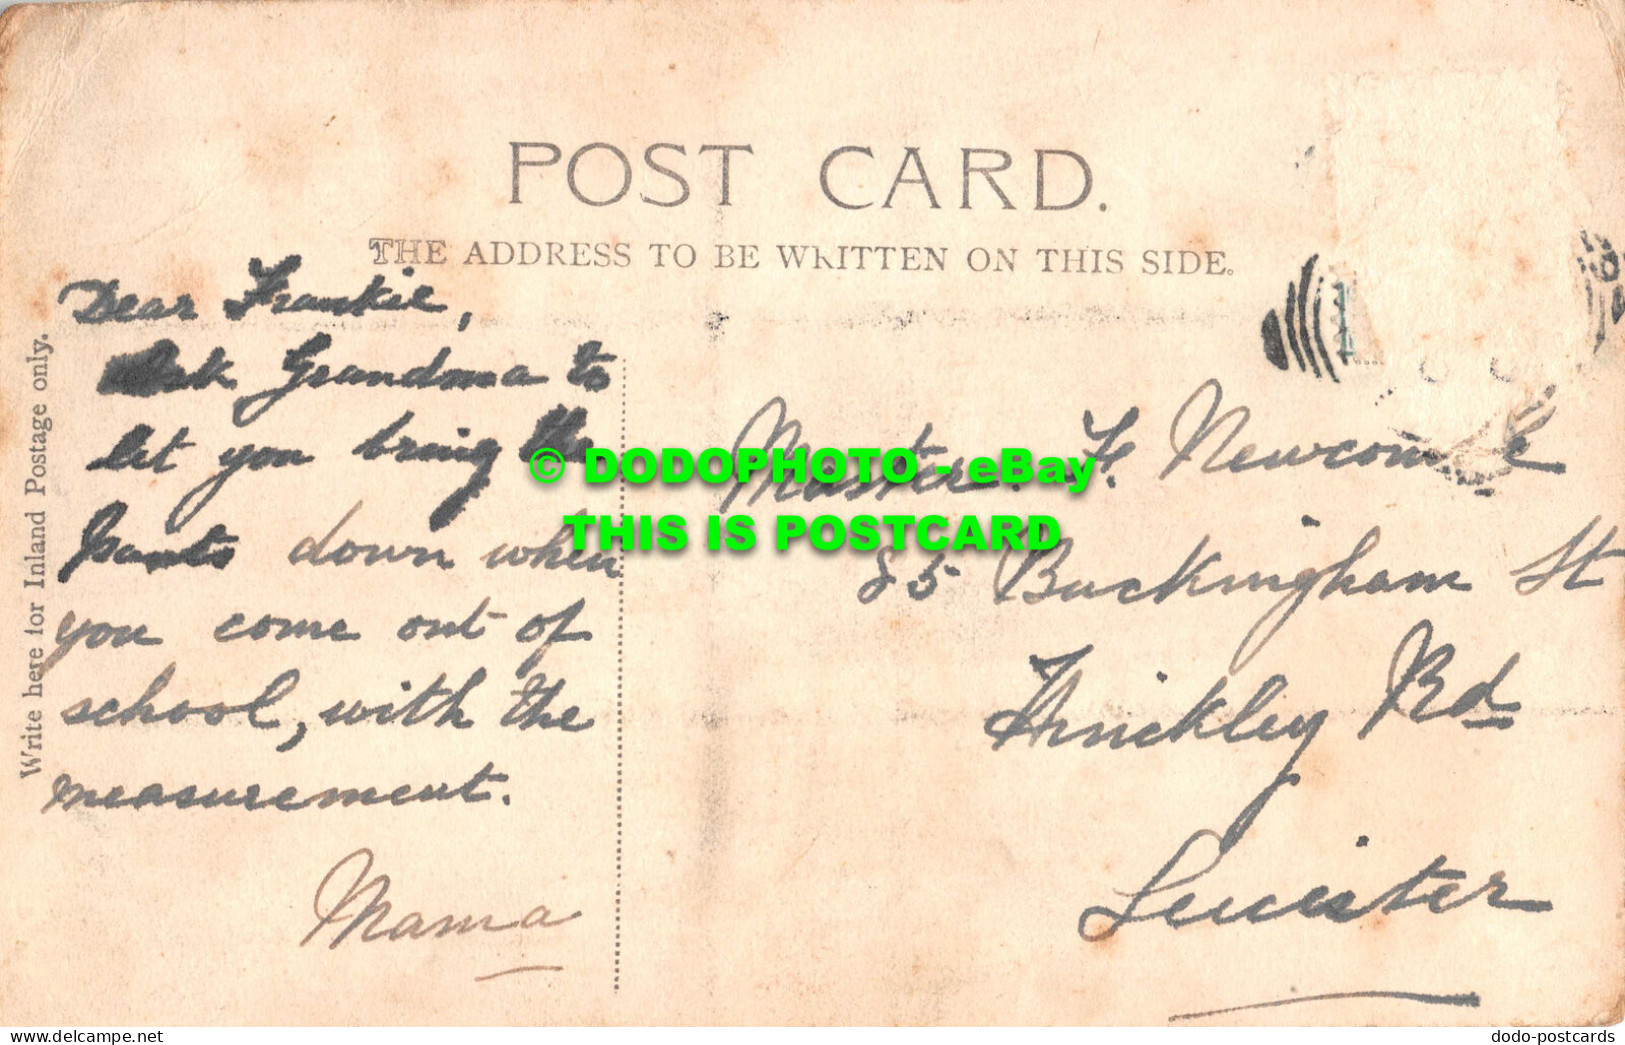 POST CARD.
THE ADDRESS TO BE WRITTEN ON THIS SIDE.
Write here for Inland Postage only.
Dear Frankie,
Ask Grandma to
let you bring the
pants down when
you come out of
school, with the
measurement.
Mama
Master. F. Newcombe
85 Buckingham St
Hinckley Rd
Leicester
© DODOPHOTO - eBay
THIS IS POSTCARD
www.delcampe.net
dodo-postcards